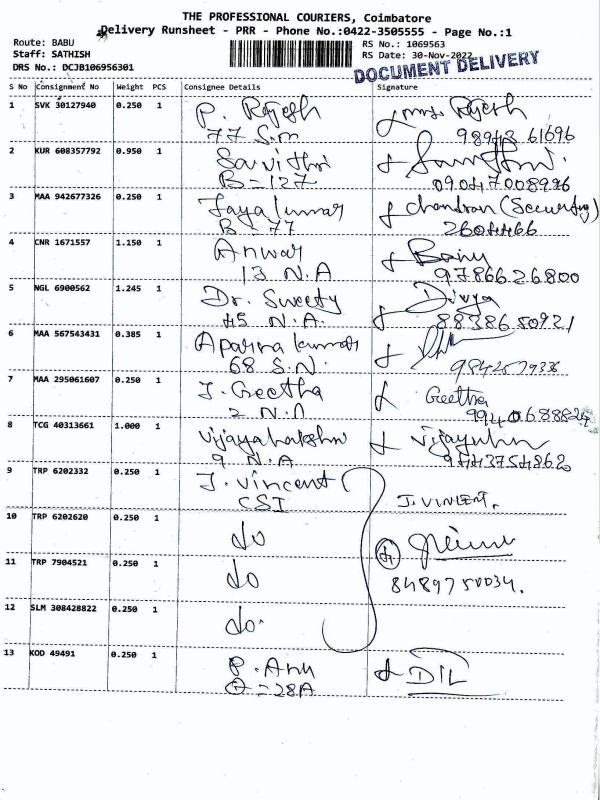 THE PROFESSIONAL COURIERS, Coimbatore
Delivery Runsheet - PRR - Phone No.:0422-3505555 - Page No.:1
Route: BABU
RS No.: 1069563
Staff: SATHISH
RS Date: 30-Nov-2022
DRS No.: DCJB106956301
DOCUMENT DELIVERY
S No Consignment No Weight PCS Consignee Details Signature
1 SVK 30127940 0.250 1 P. Rajesh Rajesh
77 S.M 98943 61696
2 KUR 608357792 0.950 1 Savithri
B=127 09047008996
3 MAA 942677326 0.250 1 Jayakumar Chandran (Security)
B=77 2604466
4 CNR 1671557 1.150 1 Anwar
13 N.A 97866 26800
5 NGL 6900562 1.245 1 Dr. Sweety Divya
45 N.A. 88386 50921
6 MAA 567543431 0.385 1 Aparna kumar
68 S.N. 9842579336
7 MAA 295061607 0.250 1 J. Geetha Geetha
2 N.A
8 TCG 40313661 1.000 1
9 N.A 9443754862
9 TRP 6202332 0.250 1 J. Vincent J. VINCENT.
CSI
10 TRP 6202620 0.250 1 do
11 TRP 7904521 0.250 1 do 8489750034.
12 SLM 308428822 0.250 1 do.
13 KOD 49491 0.250 1 P. Anu DIL
=28A